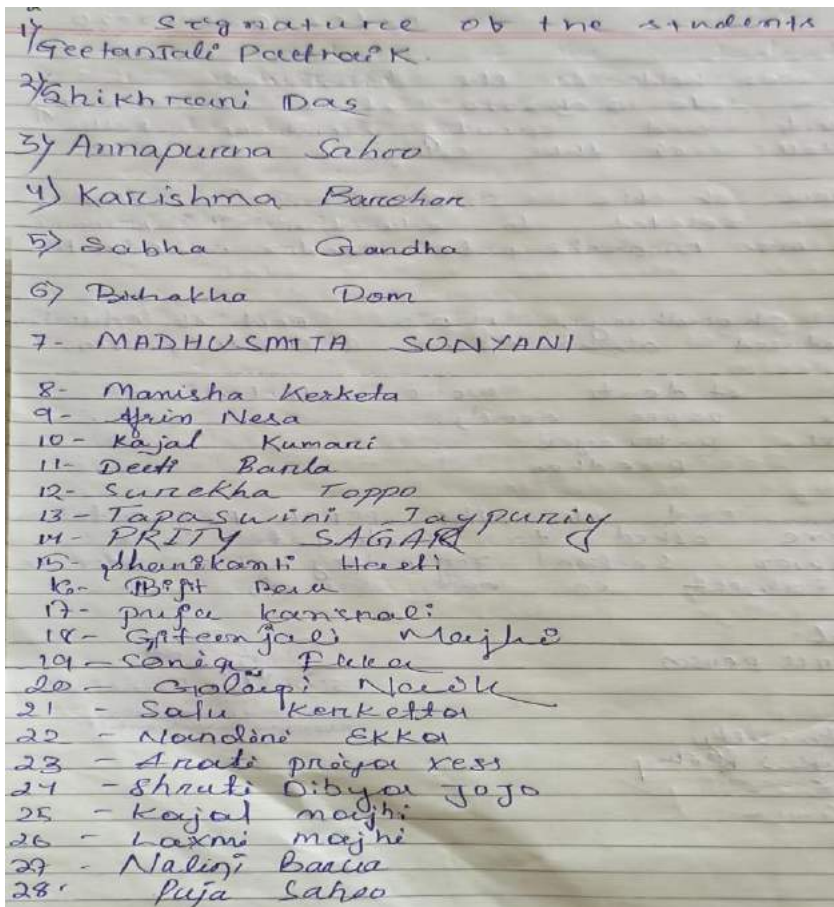 Signature of the students
1) Geetanjali Pattnaik
2) Shikharani Das
3) Annapurna Sahoo
4) Karishma Barohor
5) Sabha Gandha
6) Bishakha Dom
7- MADHUSMITA SONYANI
8- Manisha Kerketa
9- Afrin Nesa
10- Kajal Kumari
11- Barla
12- Surekha Toppo
13- Tapaswini Jaypuriy
14- PRITY SAGAR
15-
16-
17- puja
18- Gitanjali Majhi
19- Sonia
20- Golapi Naik
21 - Kerketta
22 - Nandini EKKa
23 - Arati priya xess
24 - Shruti Dibya JoJo
25 - Kajal majhi
26 - Laxmi majhi
27 - Nalini Barua
28. Puja Sahoo